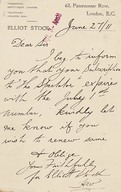 62, Paternoster Row,
London, E.C.
ELLIOT STOCK
June 27/11
Dear Sir
I beg to inform
you that your Subscription
to the Spectator expires
with the July 1st
number, kindly let
me know if you
wish to renew same
& Oblige
Yours faithfully
for Elliot Stock